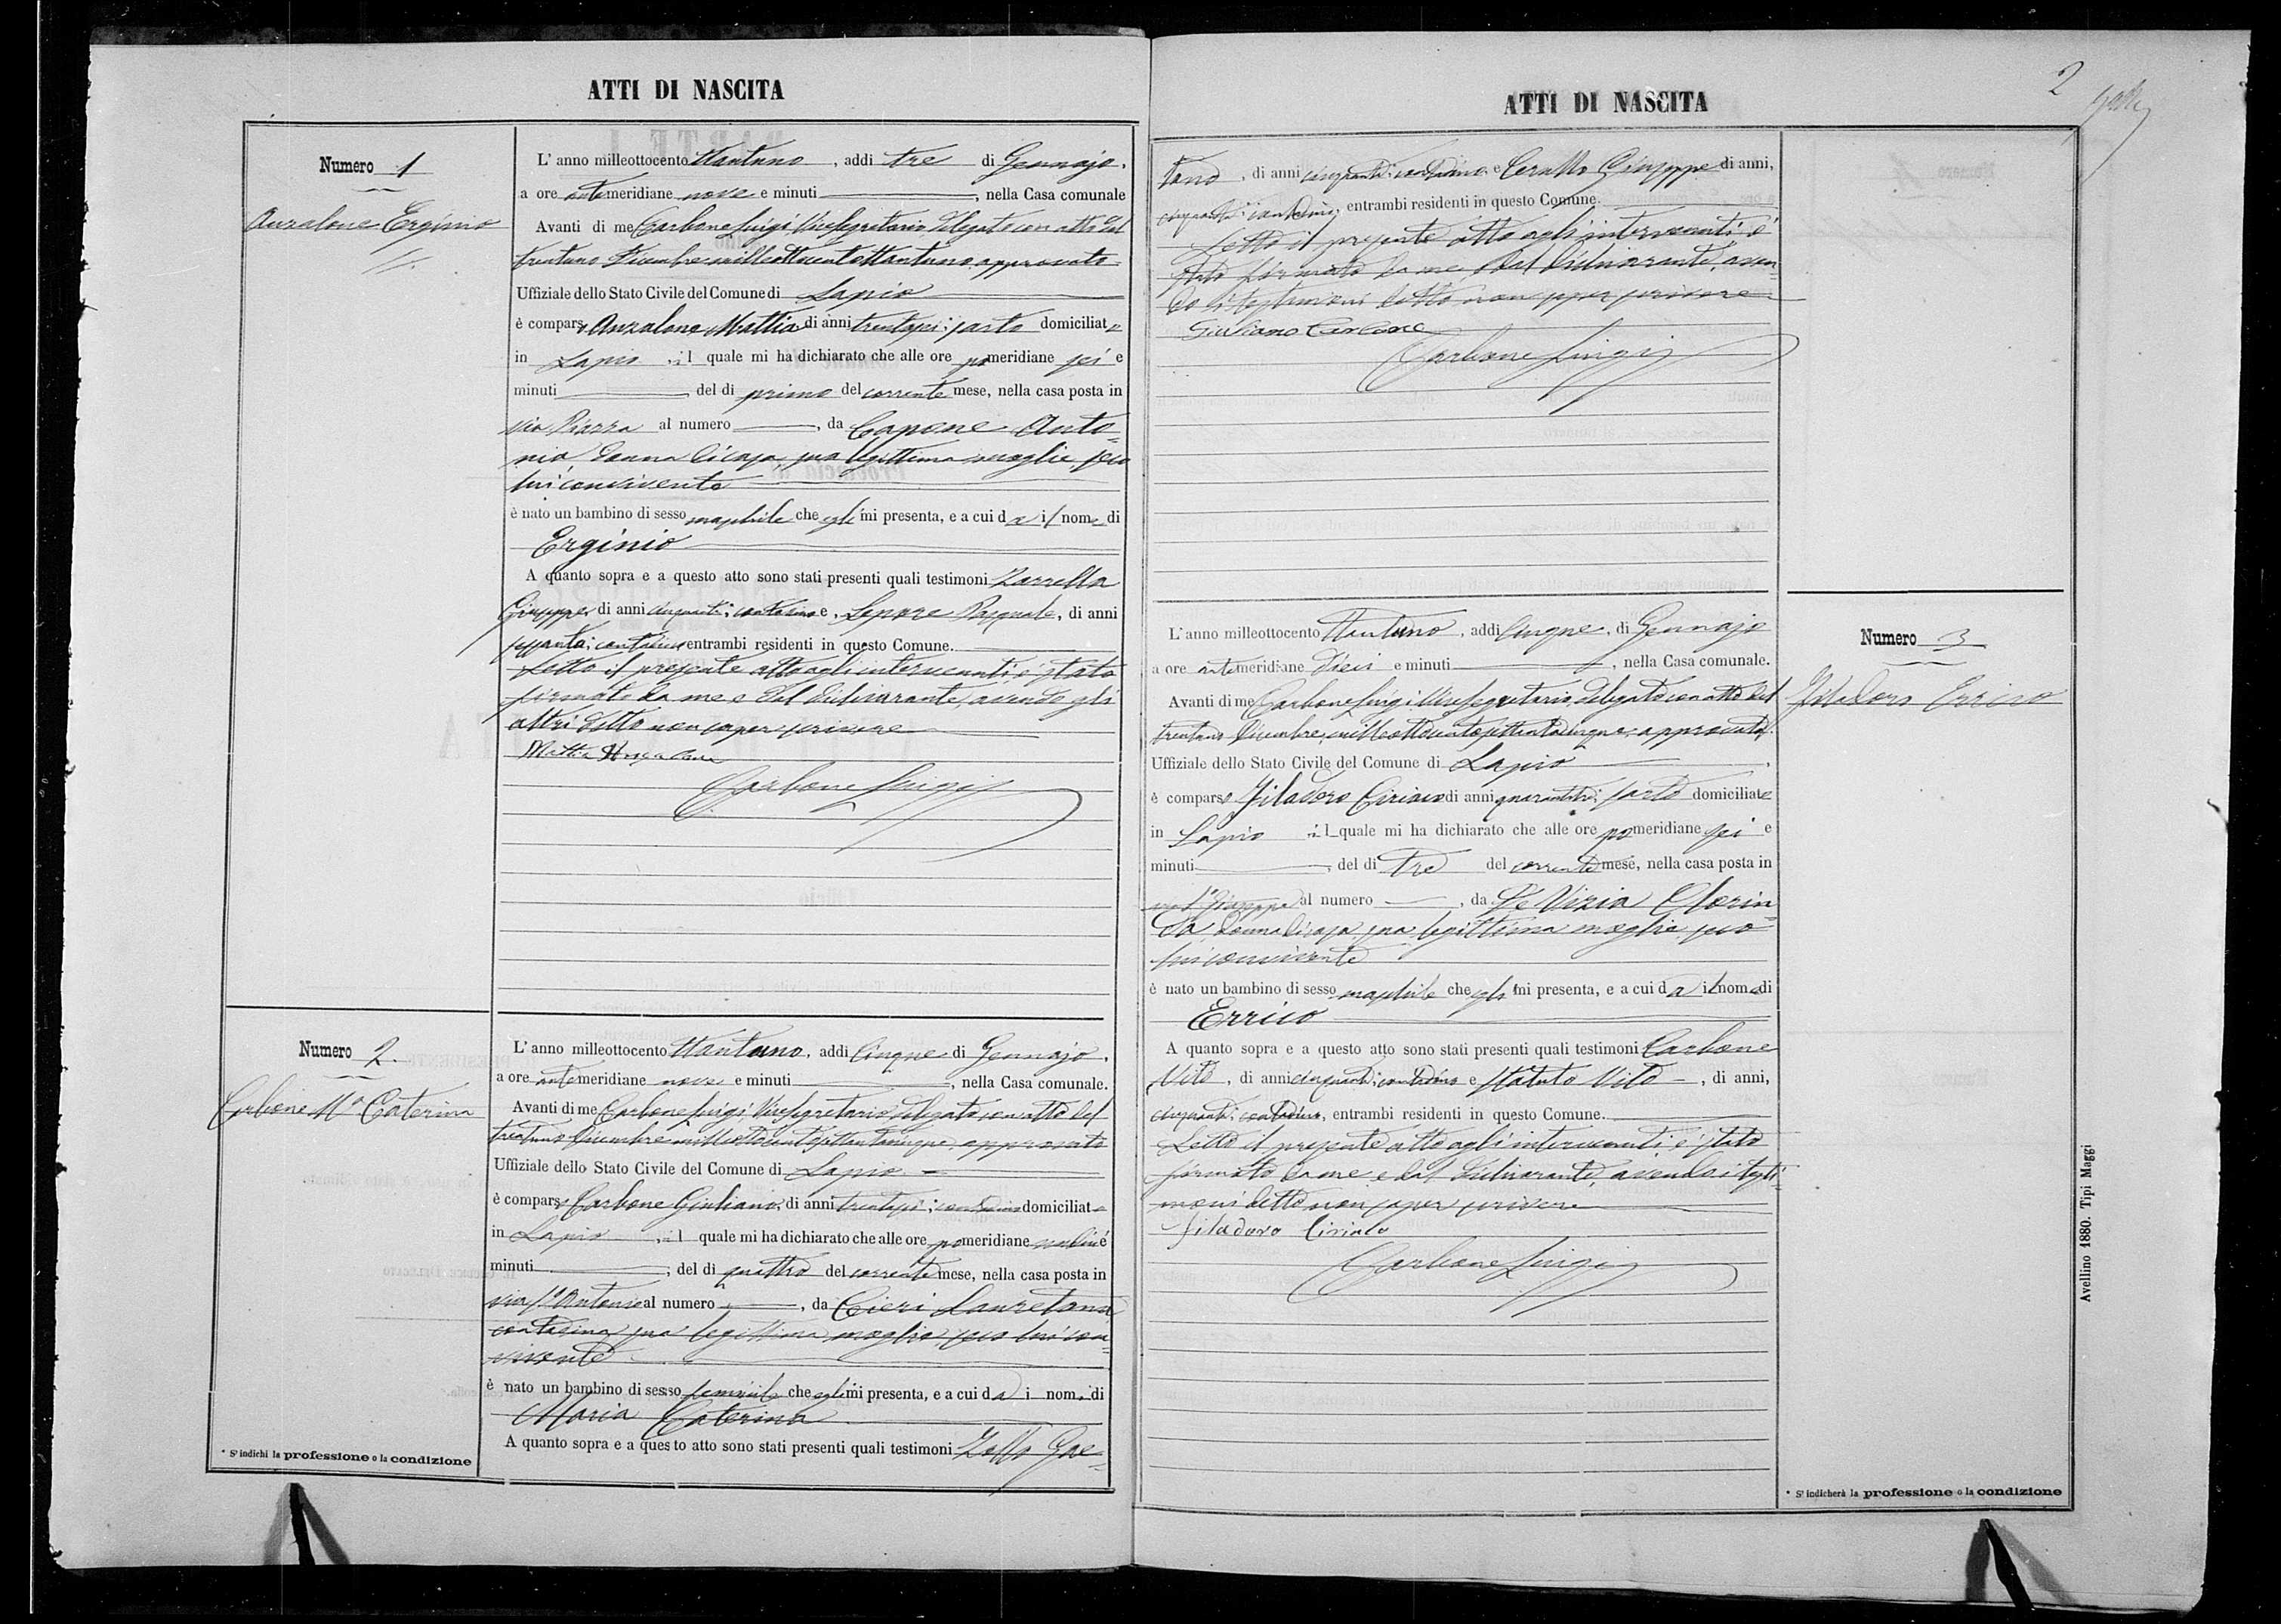 ATTI DI NASCITA
Numero 1
Anzalone Erginio
L' anno milleottocento ottantuno, addi tre di Gennajo,
a ore antemeridiane nove e minuti , nella Casa comunale
Avanti di me Carbone Luigi Vicesegretario delegato con atto del
trentuno Dicembre milleottocentottantuno approvato
Uffiziale dello Stato Civile del Comune di Lapio
è comparso Anzalone Mattia di anni trentasei; sarto domiciliato
in Lapio , il quale mi ha dichiarato che alle ore pomeridiane sei e
minuti , del di primo del corrente mese, nella casa posta in
via Piazza al numero , da Capone Anto=
nia donna di casa, sua legittima moglie, seco
lui convivente
è nato un bambino di sesso maschile che egli mi presenta, e a cui da il nome di
Erginio
A quanto sopra e a questo atto sono stati presenti quali testimoni Zarrella
Giuseppe, di anni cinquanta; contadino e, Lepore Pasquale, di anni
sessanta; contadino entrambi residenti in questo Comune.
Letto il presente atto agli intervenuti, è stato
firmato da me e dal dichiarante, avendo gli
altri detto non saper scrivere
Mattia Anzalone
Carbone Luigi
Numero 2.
Carbone Ma Caterina
L' anno milleottocento ottantuno, addi cinque di Gennajo,
a ore antemeridiane nove e minuti , nella Casa comunale.
Avanti di me Carbone Luigi Vicesegretario delegato con atto del
trentuno Dicembre milleottocentosettantacinque, approvato
Uffiziale dello Stato Civile del Comune di Lapio
è comparso Carbone Giuliano, di anni trentasei; contadino domiciliato
in Lapio , il quale mi ha dichiarato che alle ore pomeridiane e
minuti , del di quattro del corrente mese, nella casa posta in
via So Antonio al numero , da Cieri Lauretana
contadina sua legittima moglie, seco lui con=
vivente
è nato un bambino di sesso feminile che egli mi presenta, e a cui da i nomi di
Maria Caterina
A quanto sopra e a questo atto sono stati presenti quali testimoni Zollo Gae=
* Si indichi la professione o la condizione
ATTI DI NASCITA
2
tano, di anni cinquanta; contadino e Cerullo Giuseppe di anni,
cinquanta; contadino, entrambi residenti in questo Comune.
Letto il presente atto agli intervenuti, è
stato firmato da me e dal dichiarante, aven=
do i testimoni detto non saper scrivere
Giuliano Carbone
Carbone Luigi
Numero 3
Filadoro Errico
L' anno milleottocento ottantuno, addi cinque, di Gennajo
a ore antemeridiane dieci e minuti , nella Casa comunale.
Avanti di me Carbone Luigi Vicesegretario, delegato con atto del
trentuno Dicembre, milleottocentosettantacinque, approvato.
Uffiziale dello Stato Civile del Comune di Lapio
è comparso Filadoro Ciriaco di anni quarantatré; sarto domiciliato
in Lapio il quale mi ha dichiarato che alle ore pomeridiane sei e
minuti , del di tre del corrente mese, nella casa posta in
via So Giuseppe al numero , da De Vizia Clorin=
da, donna di casa, sua legittima moglie, seco
lui convivente
è nato un bambino di sesso maschile che egli mi presenta, e a cui da il nome di
Errico
A quanto sopra e a questo atto sono stati presenti quali testimoni Carbone
Vito, di anni cinquanta; contadino e Statuto Vito , di anni,
cinquanta; contadino, entrambi residenti in questo Comune.
Letto il presente atto agli intervenuti, è stato
firmato da me e dal dichiarante, avendo i testi=
moni detto non saper scrivere
Filadoro Ciriaco
Carbone Luigi
* Si indicherà la professione o la condizione
Avellino 1880. Tipi Maggi